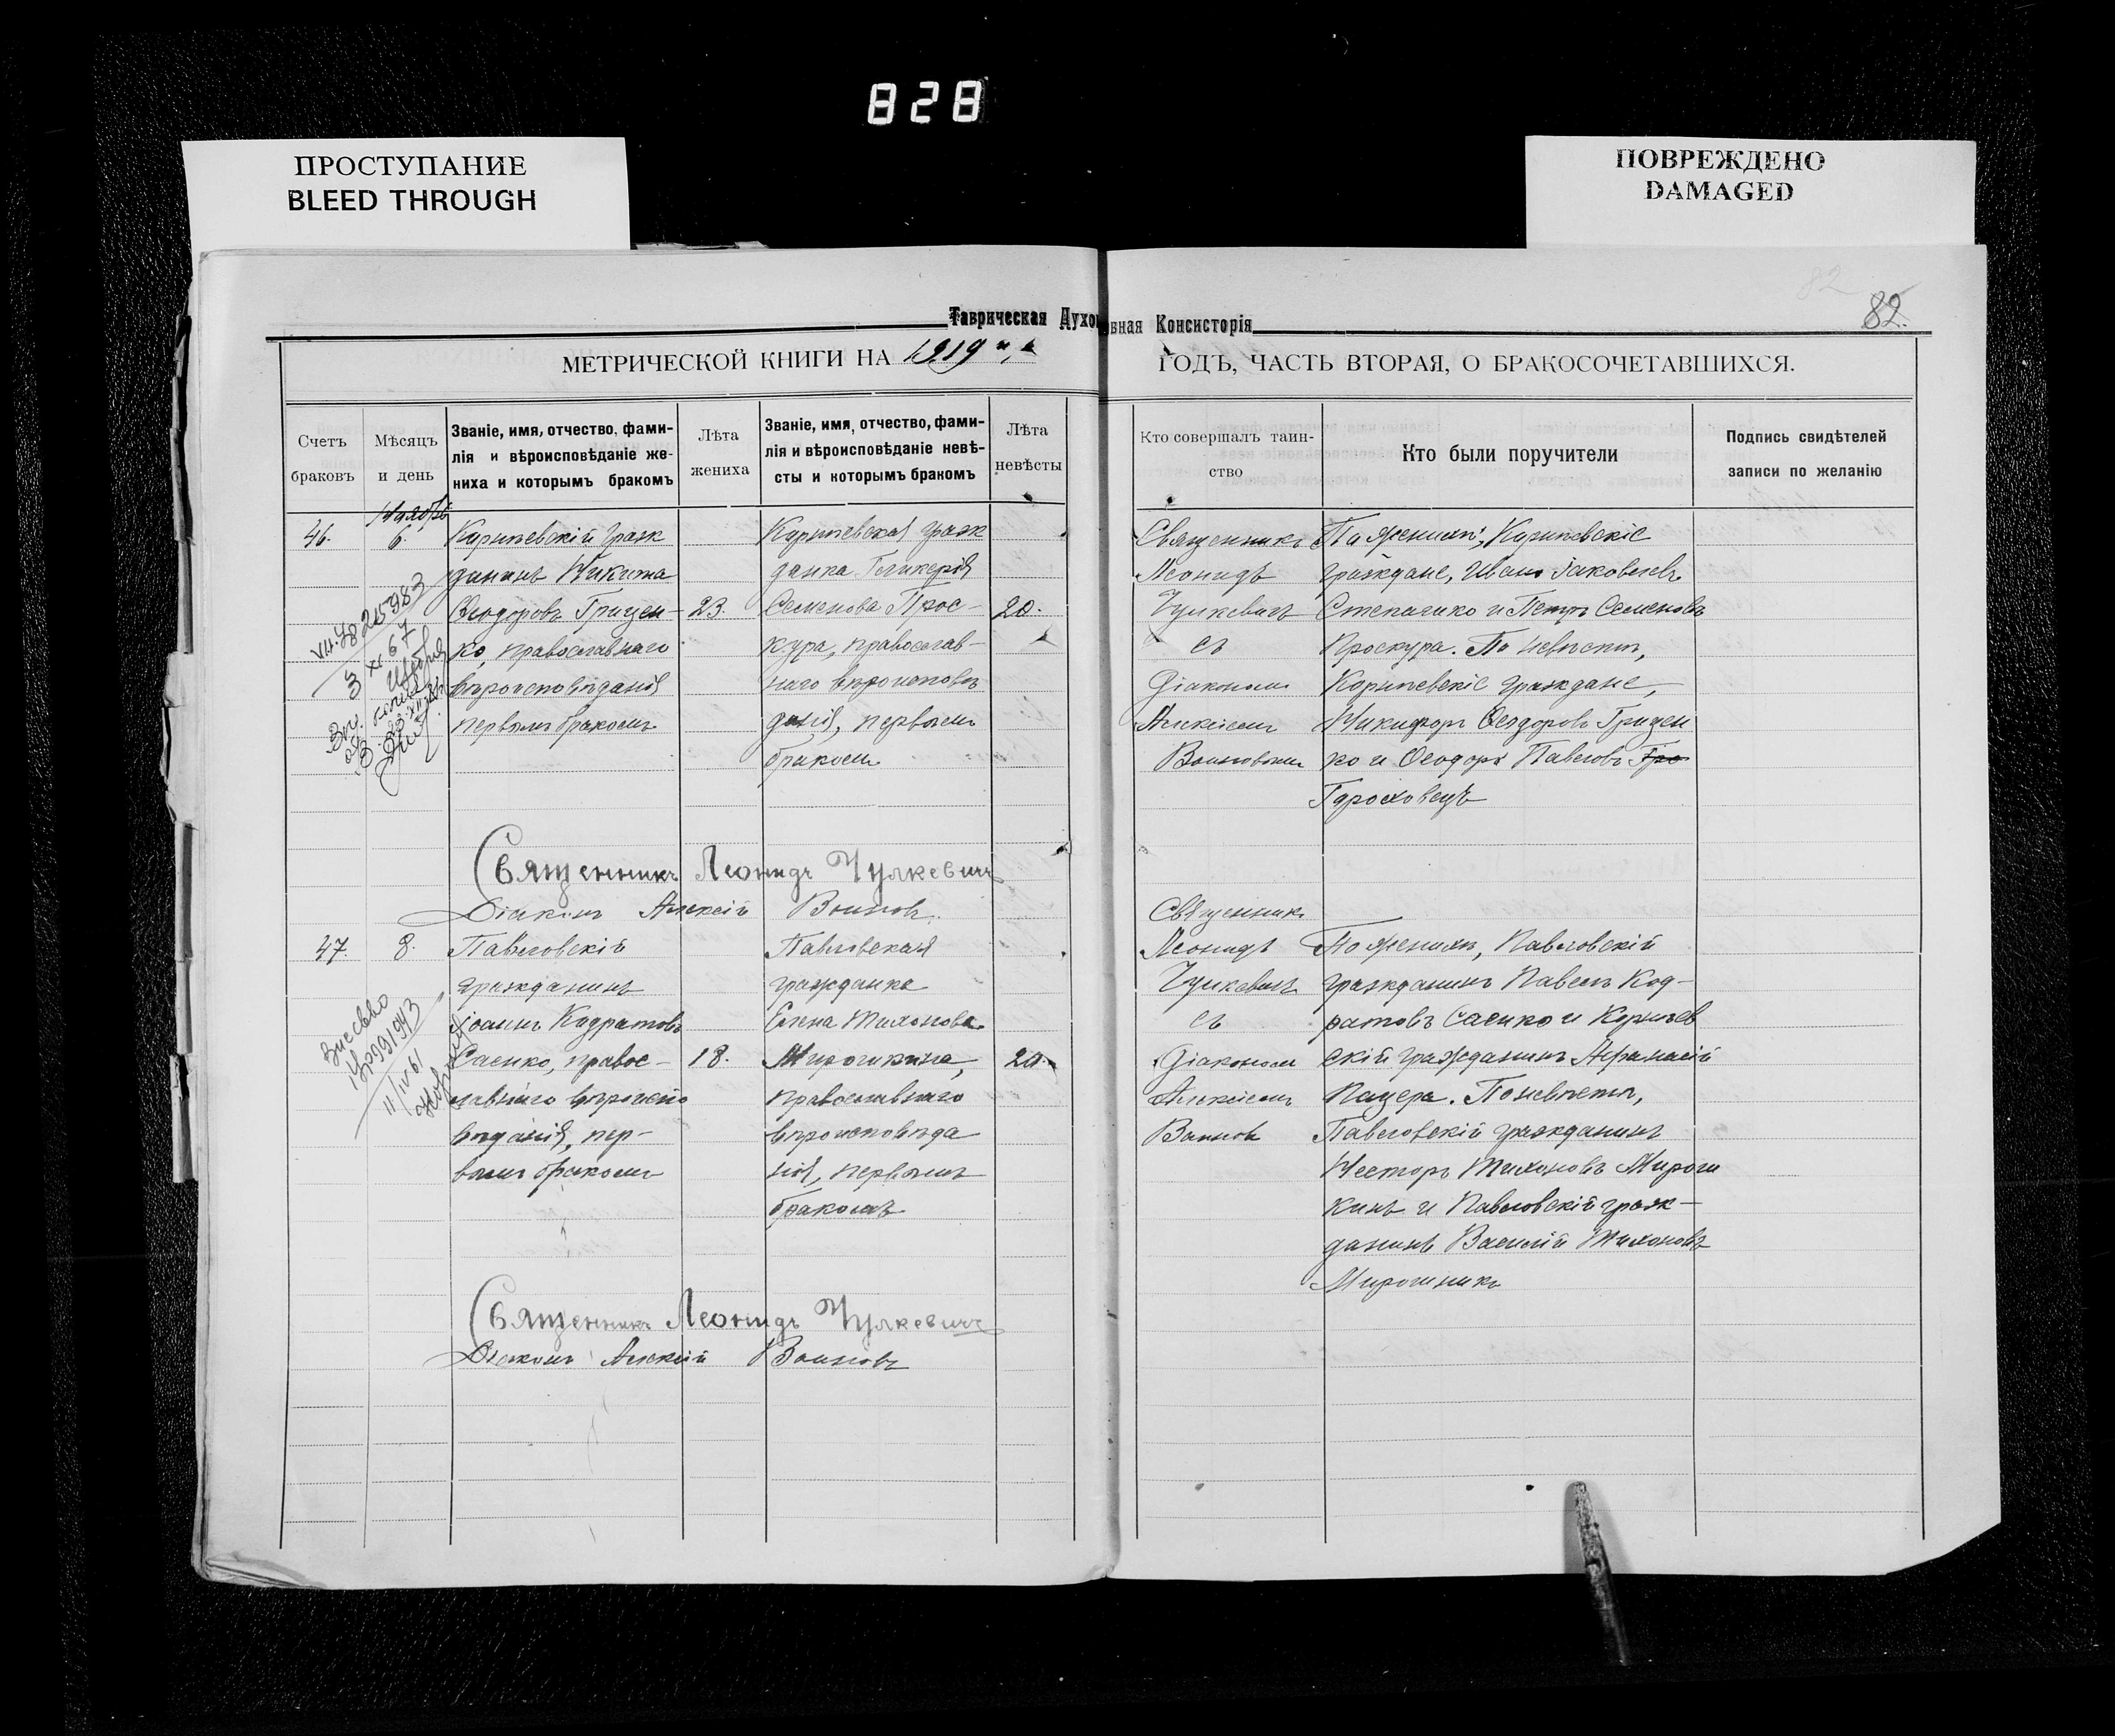 828
ПРОСТУПАНИЕ
BLEED THROUGH
ПОВРЕЖДЕНО
DAMAGED
82
82.
Таврическая Духовная Консисторія
МЕТРИЧЕСКОЙ КНИГИ НА 1919 ГОДЪ, ЧАСТЬ ВТОРАЯ, О БРАКОСОЧЕТАВШИХСЯ.
Счетъ браковъ
Мѣсяцъ и день
Званіе, имя, отчество, фами-
лія и вѣроисповѣданіе же-
ниха и которымъ бракомъ
Лѣта жениха
Званіе, имя, отчество, фами-
лія и вѣроисповѣданіе невѣ-
сты и которымъ бракомъ
Лѣта невѣсты
Кто совершалъ таин-
ство
Кто были поручители
Подпись свидѣтелей
записи по желанію
46.
6.
граж
данинъ Никита
Ѳеодоровъ Грицен-
ко, православнаго
вѣроисповѣданія
первымъ бракомъ
23.
граж
данка Гликерія
Семенова Прос-
кура, православ-
наго вѣроисповѣ
данія, первымъ
бракомъ
20.
Священникъ
Леонидъ
Чулкевичъ
съ
Діакономъ
Алексіемъ
Воиновымъ
По женихѣ,
граждане, Иванъ Іаковлевъ
Степаненко и Петръ Семеновъ
Проскура. По невѣстѣ,
граждане,
Никифоръ Ѳеодоровъ Грицен
ко и Ѳеодоръ Павловъ Гро
Гороховецъ
Священникъ Леонидъ Чулкевичъ
Діаконъ Алексій Воиновъ
47.
8.
Павловскій
гражданинъ
Іоаннъ Кодратовъ
Саенко, правос-
лавнаго вѣроиспо
вѣданія, пер-
вымъ бракомъ
18.
Павловская
гражданка
Елена Тихонова
православнаго
вѣроисповѣда
нія, первымъ
бракомъ
20.
Священникъ
Леонидъ
Чулкевичъ
съ
Діакономъ
Алексіемъ
Воиновъ
По женихѣ, Павловскій
гражданинъ Павелъ Код-
ратовъ Саенко и
скій гражданинъ Афанасій
Пацера. По невѣстѣ,
Павловскій гражданинъ
Несторъ Тихоновъ Мирош
кинъ и Павловскій граж-
данинъ Василій Тихоновъ
Мирошникъ
Священникъ Леонидъ Чулкевичъ
Діаконъ Алексій Воиновъ